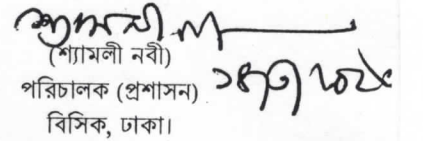 (শ্যামলী নবী)
পরিচালক (প্রশাসন)
বিসিক, ঢাকা।